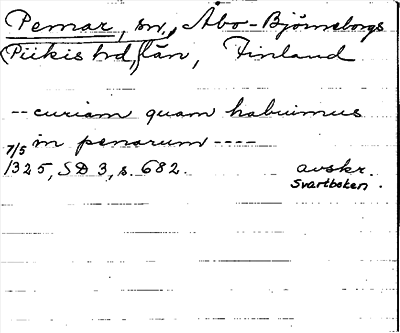 Pemar, sn., Åbo-Björneborgs
(Piikis hd,) län, Finland
-- curiam quam habuimus
in penarum ----
7/5
1325, SD 3, s. 682. avskr.
Svartboken.